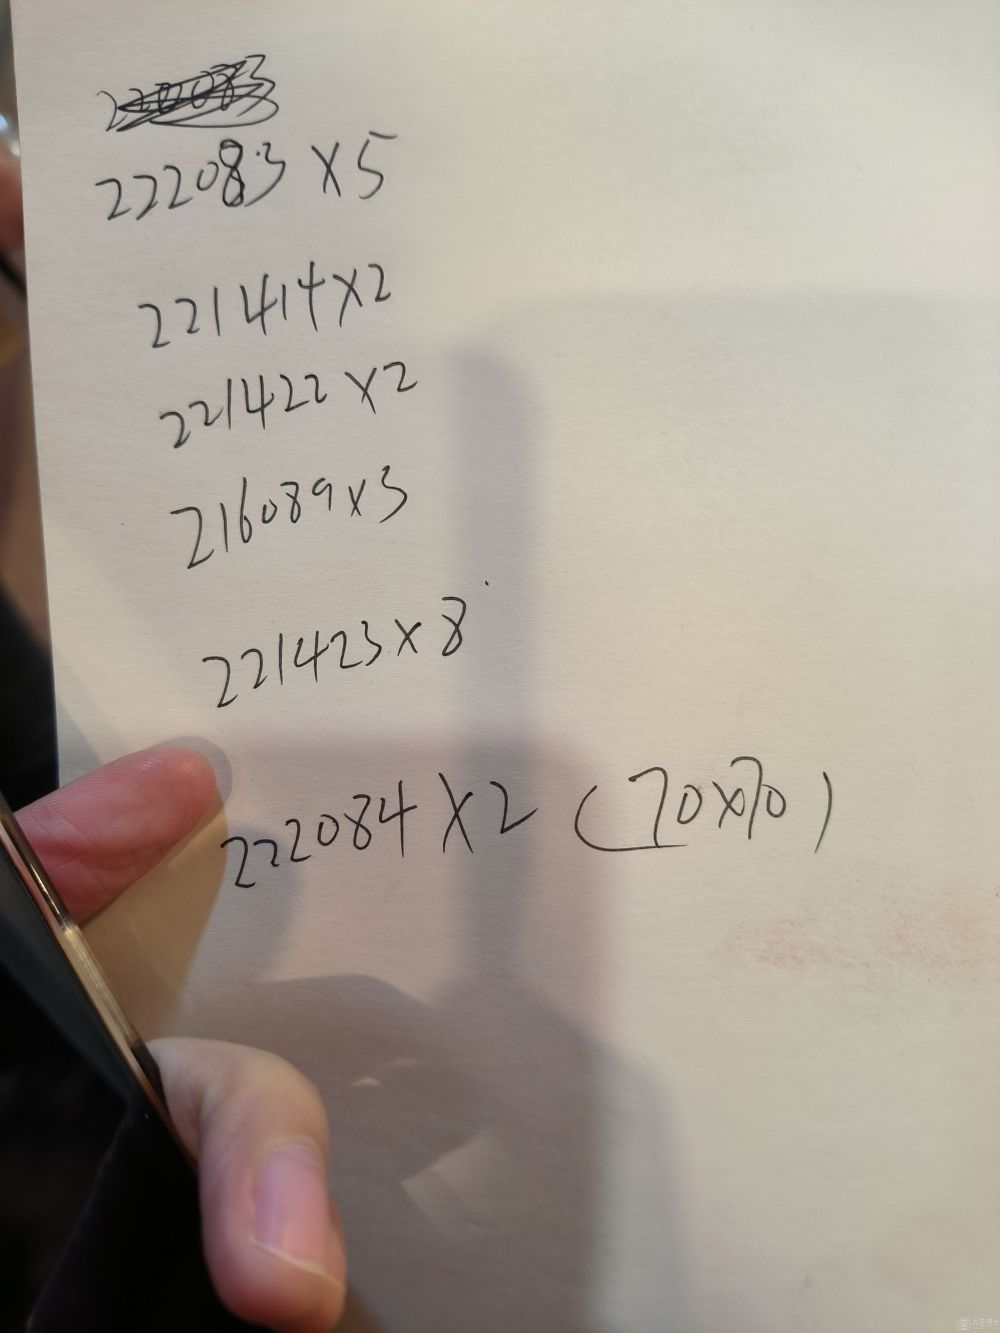 222083 x 5
221414 x 2
221422 x 2
216089 x 3
221423 x 8
222084 x 2 (70x70)